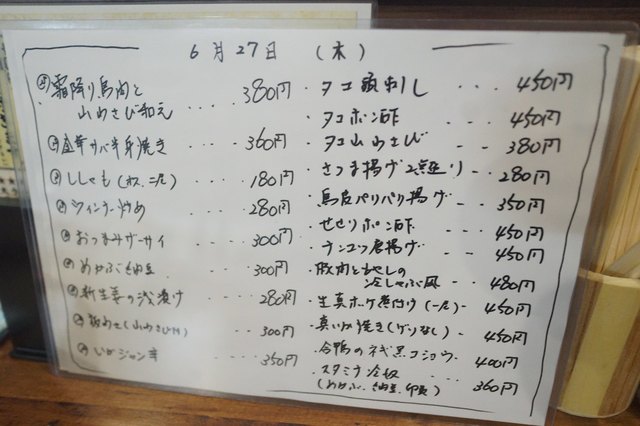 6月27日 (木)
霜降り馬肉と
山わさび和え ···· 380円
金華サバ半身焼き ··· 360円
ししゃも(オス、二尾) 180円
ウィンナー炒め ···· 280円
おつまみザーサイ ···· 300円
めかぶ納豆 ···· 300円
新生姜の浅漬け ···· 280円
(山わさび付) ··· 300円
いかジャン辛 ···· 350円
・タコ頭刺し ··· 450円
・タコポン酢 ··· 450円
・タコ山わさび ··· 380円
・さつま揚げ2点盛り - 280円
・馬皮パリパリ揚げ - 350円
・せせりポン酢 ··· 450円
・ナンコツ唐揚げ - - 450円
・豚肉ともやしの
冷しゃぶ風 - - 480円
・生真ホッケ煮付け(一尾) - 450円
・真いか焼き(ゲソなし) - 450円
・合鴨のネギ黒コショウ - 400円
・スタミナ冷奴 - - - 360円
(めかぶ、納豆、卵黄)